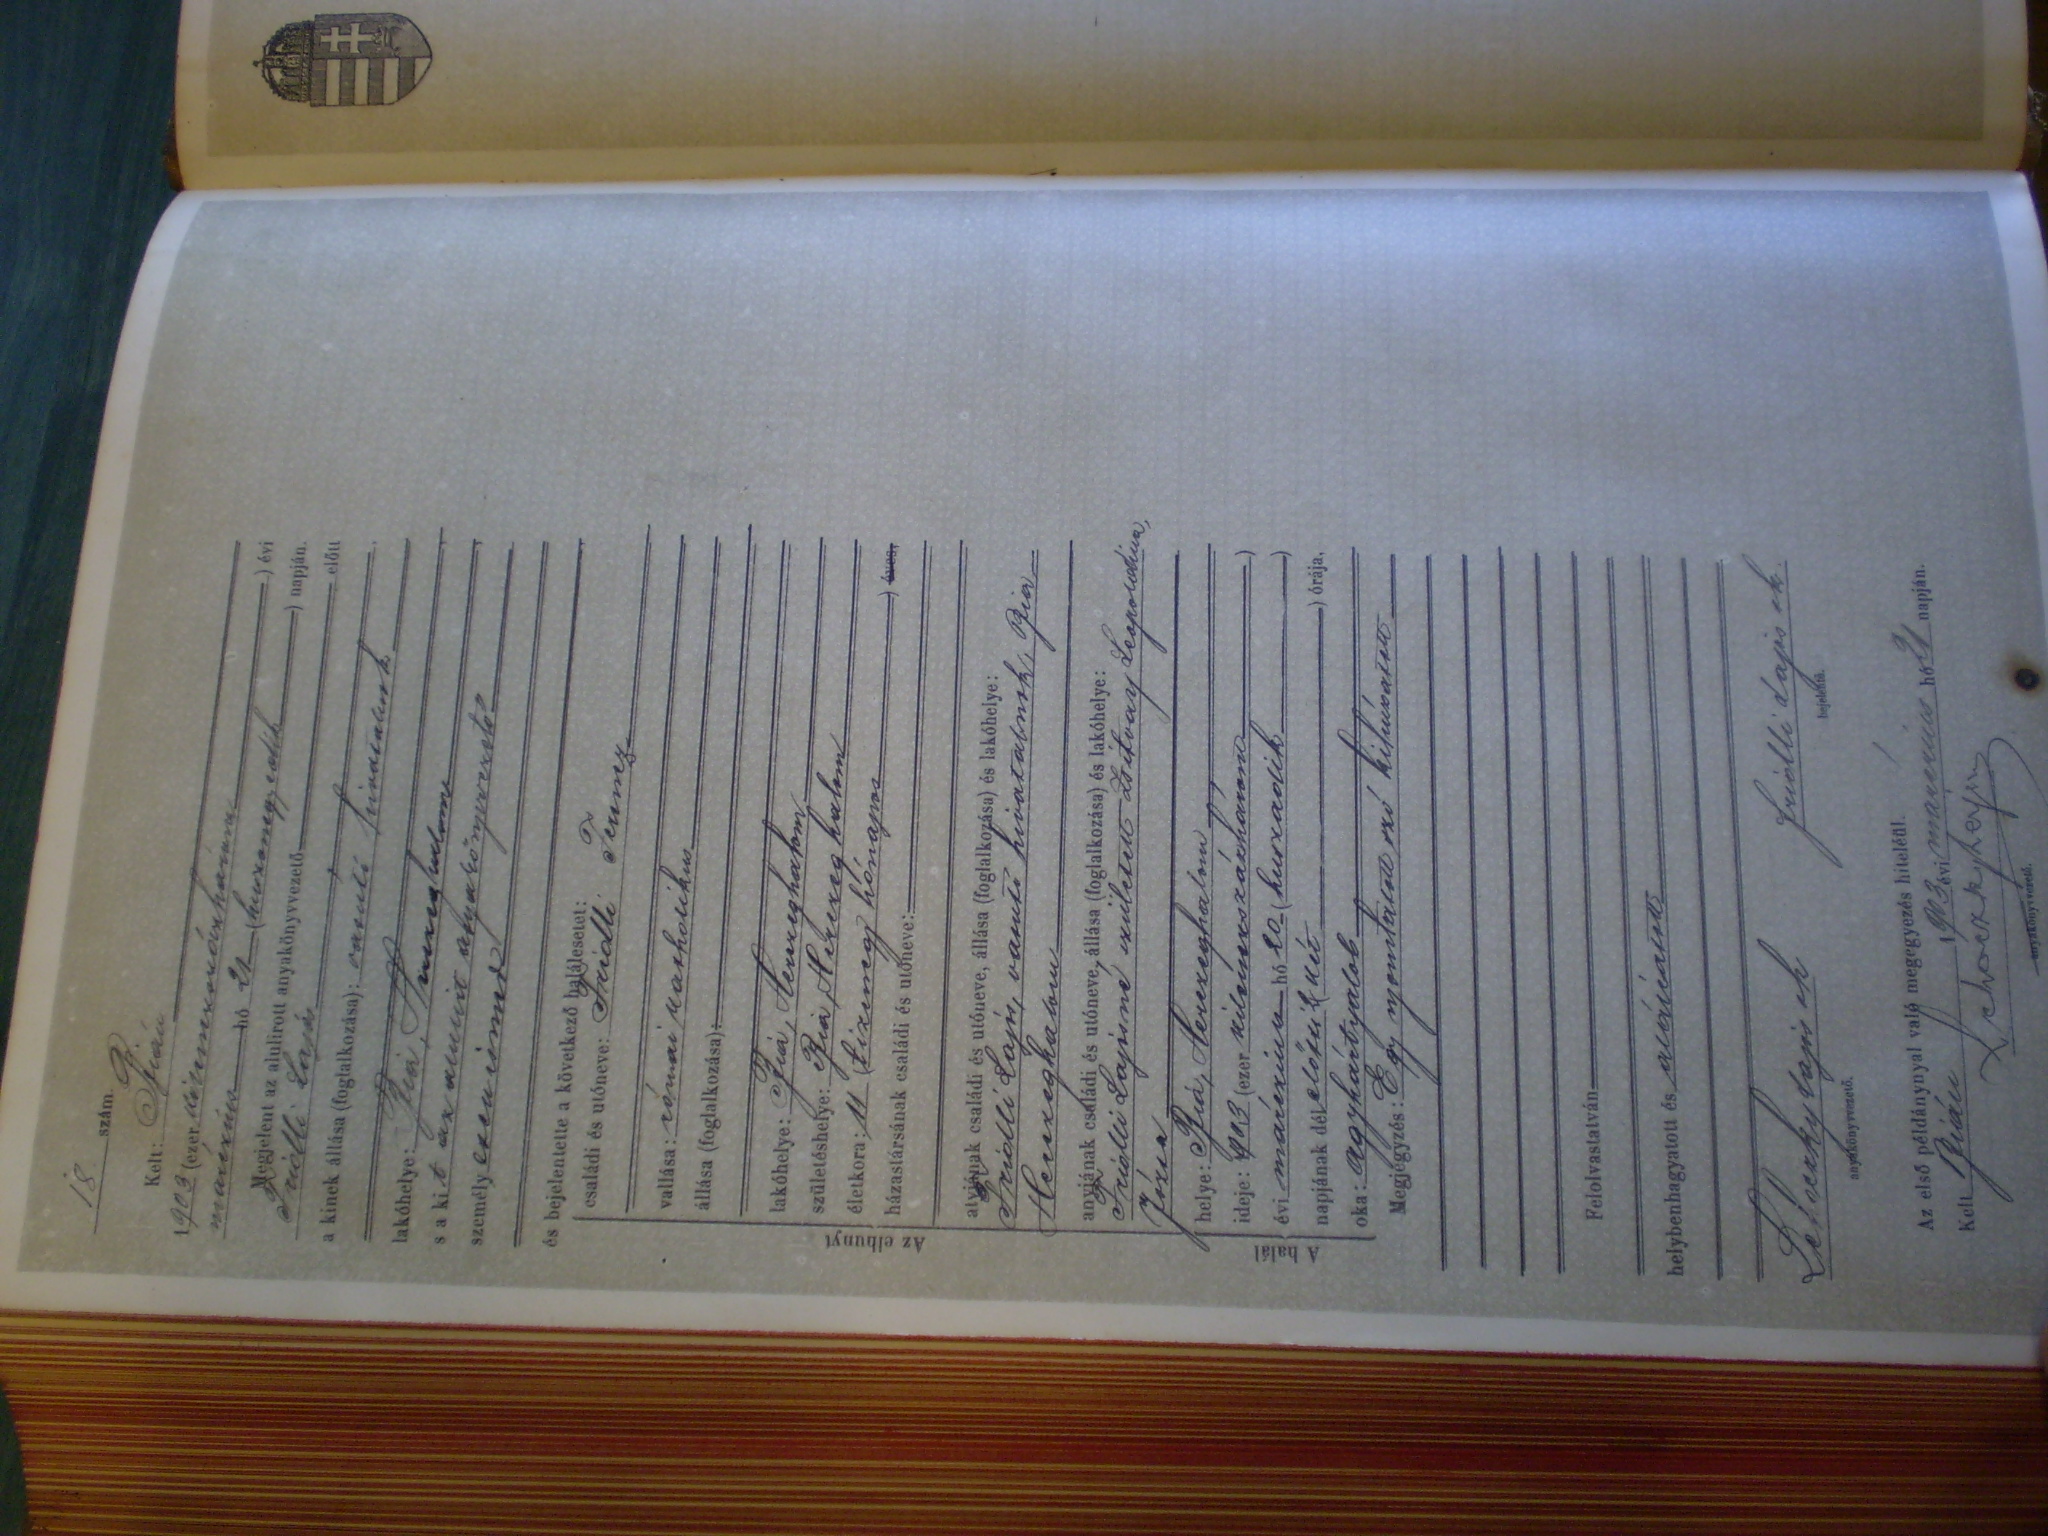 18 szám.
Kelt: Bián
1903 (ezer kilenczszázhárom
márczius hó 21 (huszonegyedik ) évi
) napján.
Megjelent az alulirott anyakönyvvezető előtt
Friedli Lajos
a kinek állása (foglalkozása): vasúti hivatalnok
lakóhelye: Bia, Herczeghalom
s a kit az alulirt anyakönyvvezető
személyesen ismer
és bejelentette a következő halálesetet:
Az elhunyt
családi és utóneve: Friedli Ferencz
vallása: római katholikus
állása (foglalkozása):
lakóhelye: Bia, Herczeghalom
születéshelye: Bia, Herczeghalom
életkora: 11 (tizenegy hónapos ) éves,
házastársának családi és utóneve:
atyjának családi és utóneve, állása (foglalkozása) és lakóhelye:
Friedli Lajos, vasúti hivatalnok, Bia
Herczeghalom
anyjának családi és utóneve, állása (foglalkozása) és lakóhelye:
Friedli Lajosné született Zsitvay Leopoldina,
A halál
helye: Bia, Herczeghalom
ideje: 1903 (ezer kilenczszázhárom )
évi márczius hó 20 (huszadik )
napjának dél előtti ) órája,
oka: agyhártyalob
Megjegyzés: Egy nyomtatott szó kihúzatott
Felolvastatván
helybenhagyatott és aláíratott
Lehoczky Lajos sk
anyakönyvvezető.
Friedli Lajos sk.
bejelentő.
Az első példánynyal való megegyezés hiteléül.
Kelt Bián 1903 évi márczius hó 21 napján.
Lehoczky
anyakönyvvezető.